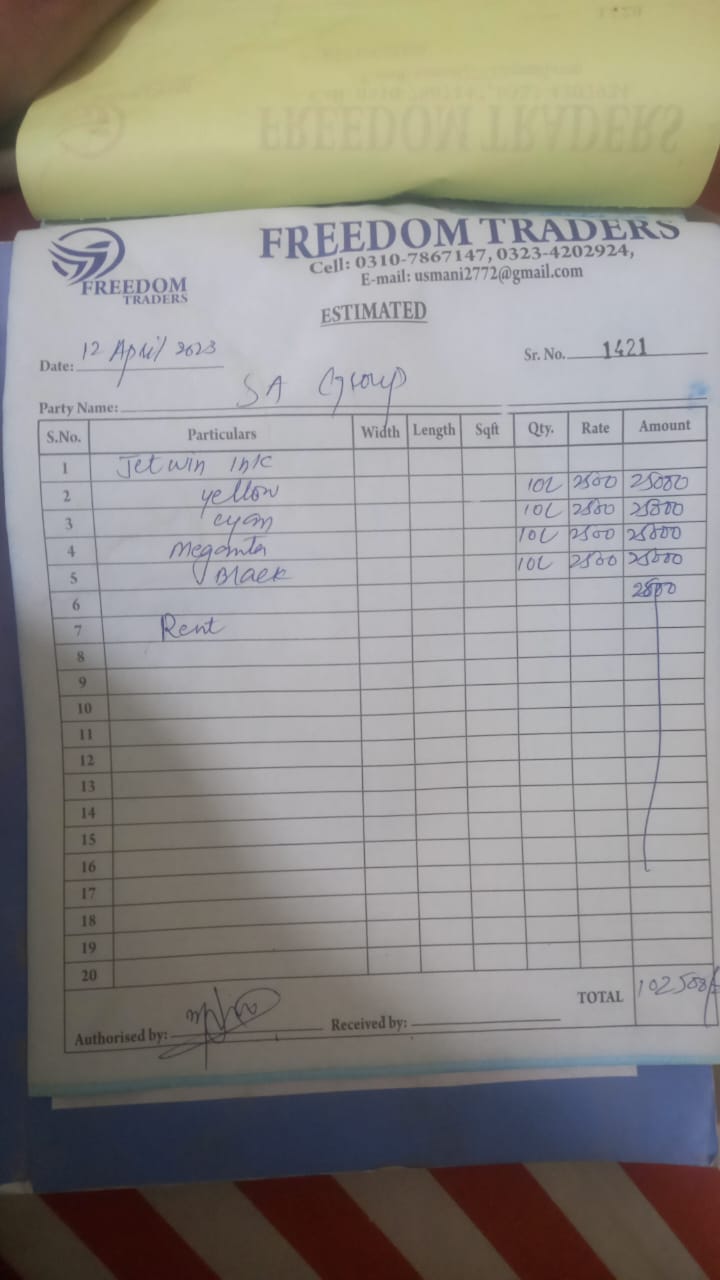 FREEDOM TRADERS
FREEDOM
TRADERS
Cell: 0310-7867147, 0323-4202924,
E-mail: usmani2772@gmail.com
ESTIMATED
Date: 12 April 2023 Sr. No. 1421
Party Name: SA Group
S.No. Particulars Width Length Sqft Qty. Rate Amount
1 Jetwin ink
2 yellow 10L 2500 25000
3 cyan 10L 2500 25000
4 Meganta 10L 2500 25000
5 Black 10L 2500 25000
6 2500
7 Rent
8
9
10
11
12
13
14
15
16
17
18
19
20
TOTAL 102500/-
Authorised by: Received by: